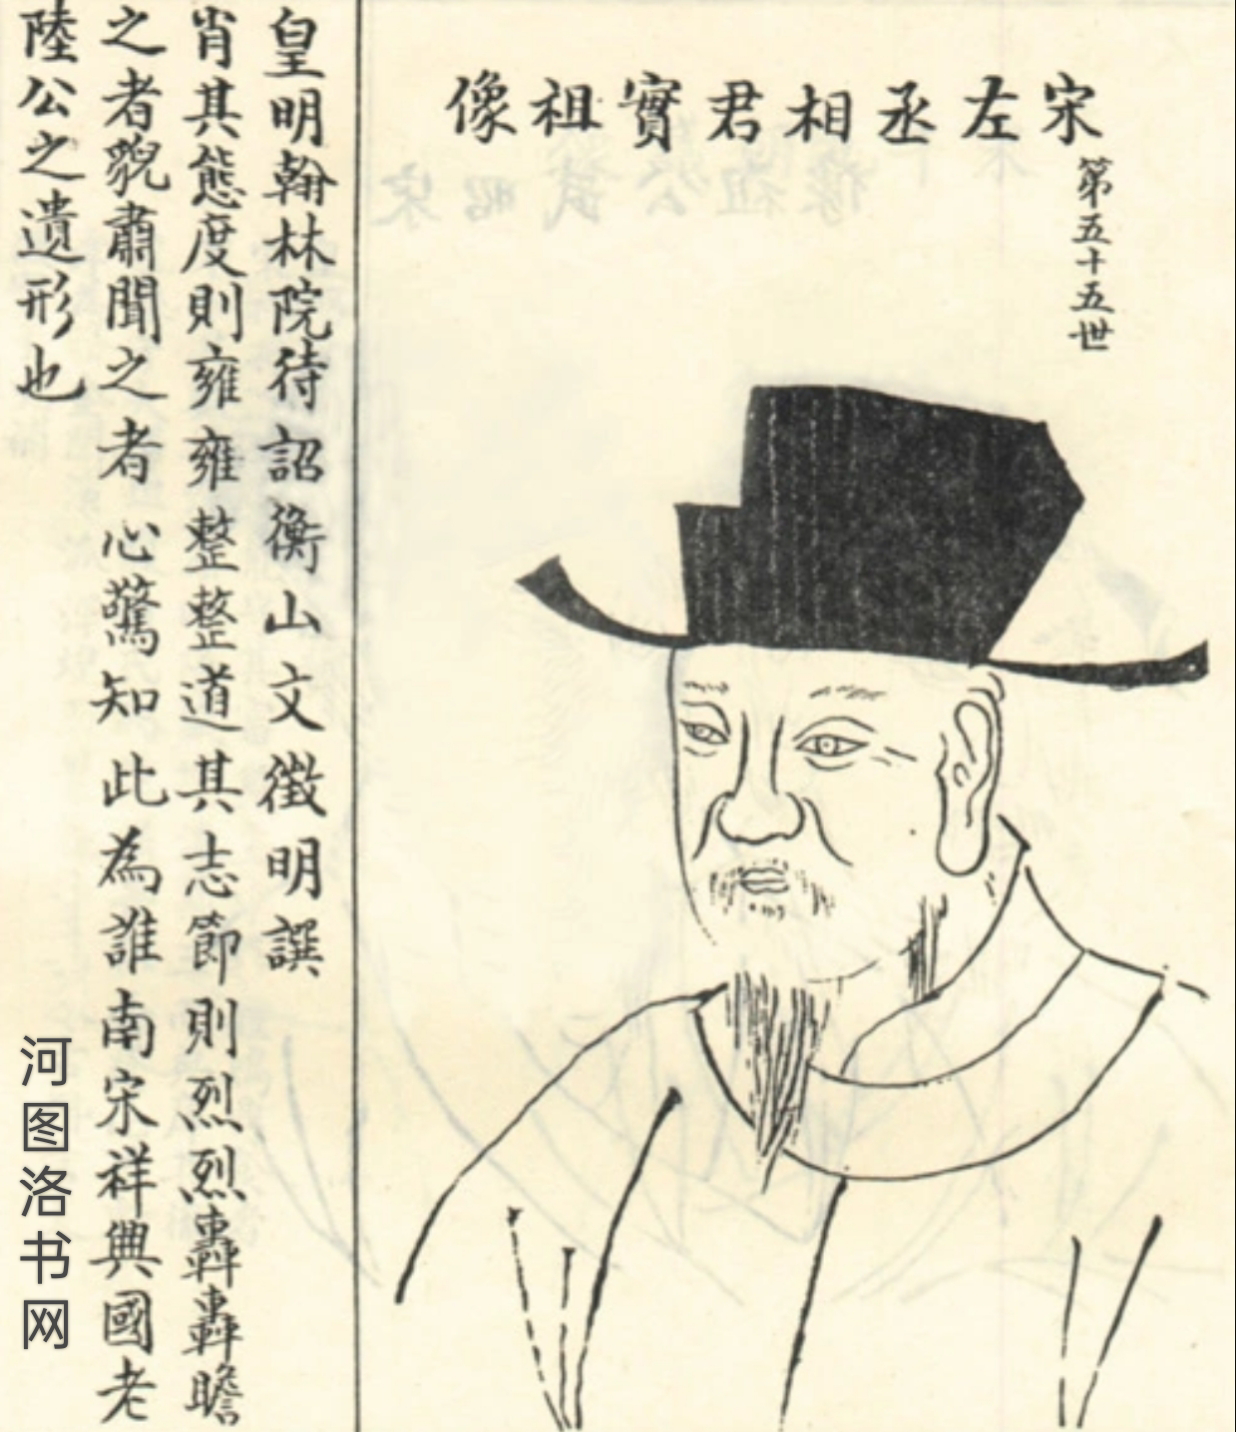 宋左丞相君實祖像
第五十五世
皇明翰林院待詔衡山文徵明譔
肖其態度則雍雍整整道其志節則烈烈轟轟瞻
之者貌肅聞之者心驚知此為誰南宋祥興國老
陸公之遺形也
河图洛书网